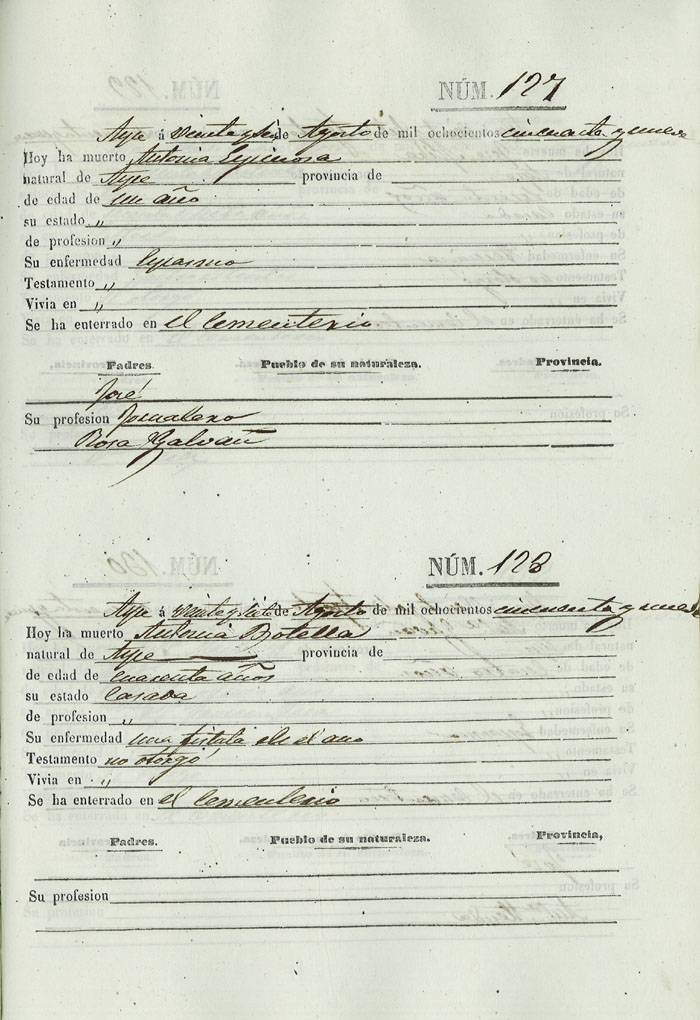 NÚM. 127
Aspe á veinte y seis de Agosto de mil ochocientos cincuenta y nueve
Hoy ha muerto Antonia Espinosa
natural de Aspe provincia de
de edad de un año
su estado „
de profesion „
Su enfermedad Espasmo
Testamento „
Vivia en „
Se ha enterrado en el Cementerio
Padres. Pueblo de su naturaleza. Provincia.
José
Su profesion Jornalero
Rosa Galvañ
NÚM. 128
Aspe á veinte y siete de Agosto de mil ochocientos cincuenta y nueve
Hoy ha muerto Antonia Botella
natural de Aspe provincia de
de edad de cuarenta años
su estado Casada
de profesion „
Su enfermedad una fistola en el ano
Testamento no otorgó
Vivia en „
Se ha enterrado en el Cementerio
Padres. Pueblo de su naturaleza. Provincia,
Su profesion